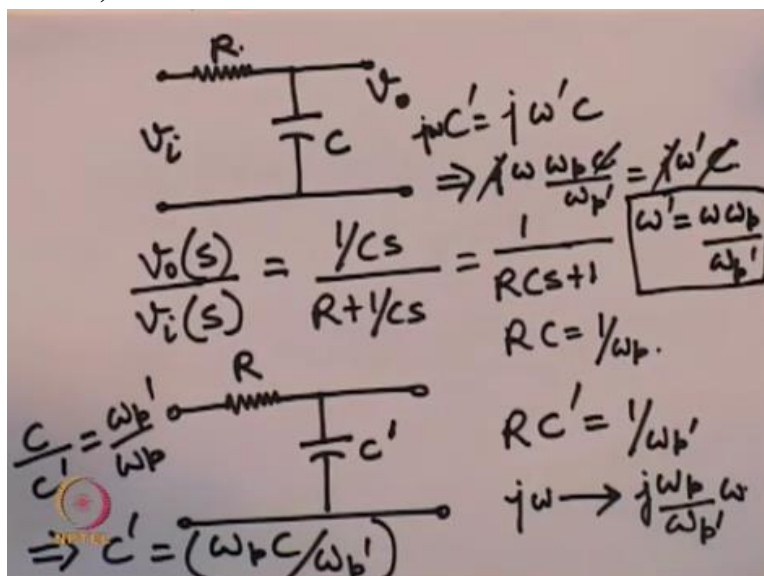 R.
V₀
Vᵢ
C
jωC' = jω'C
⇒ jω ωₚC/ωₚ' = jω'C
ω' = ωωₚ/ωₚ'
V₀(s)/Vᵢ(s) = (1/Cs)/(R+1/Cs) = 1/(RCs+1)
RC = 1/ωₚ.
R
C'
C/C' = ωₚ'/ωₚ
RC' = 1/ωₚ'
jω → j ωₚ/ωₚ' ω
⇒ C' = (ωₚC/ωₚ')
NPTEL